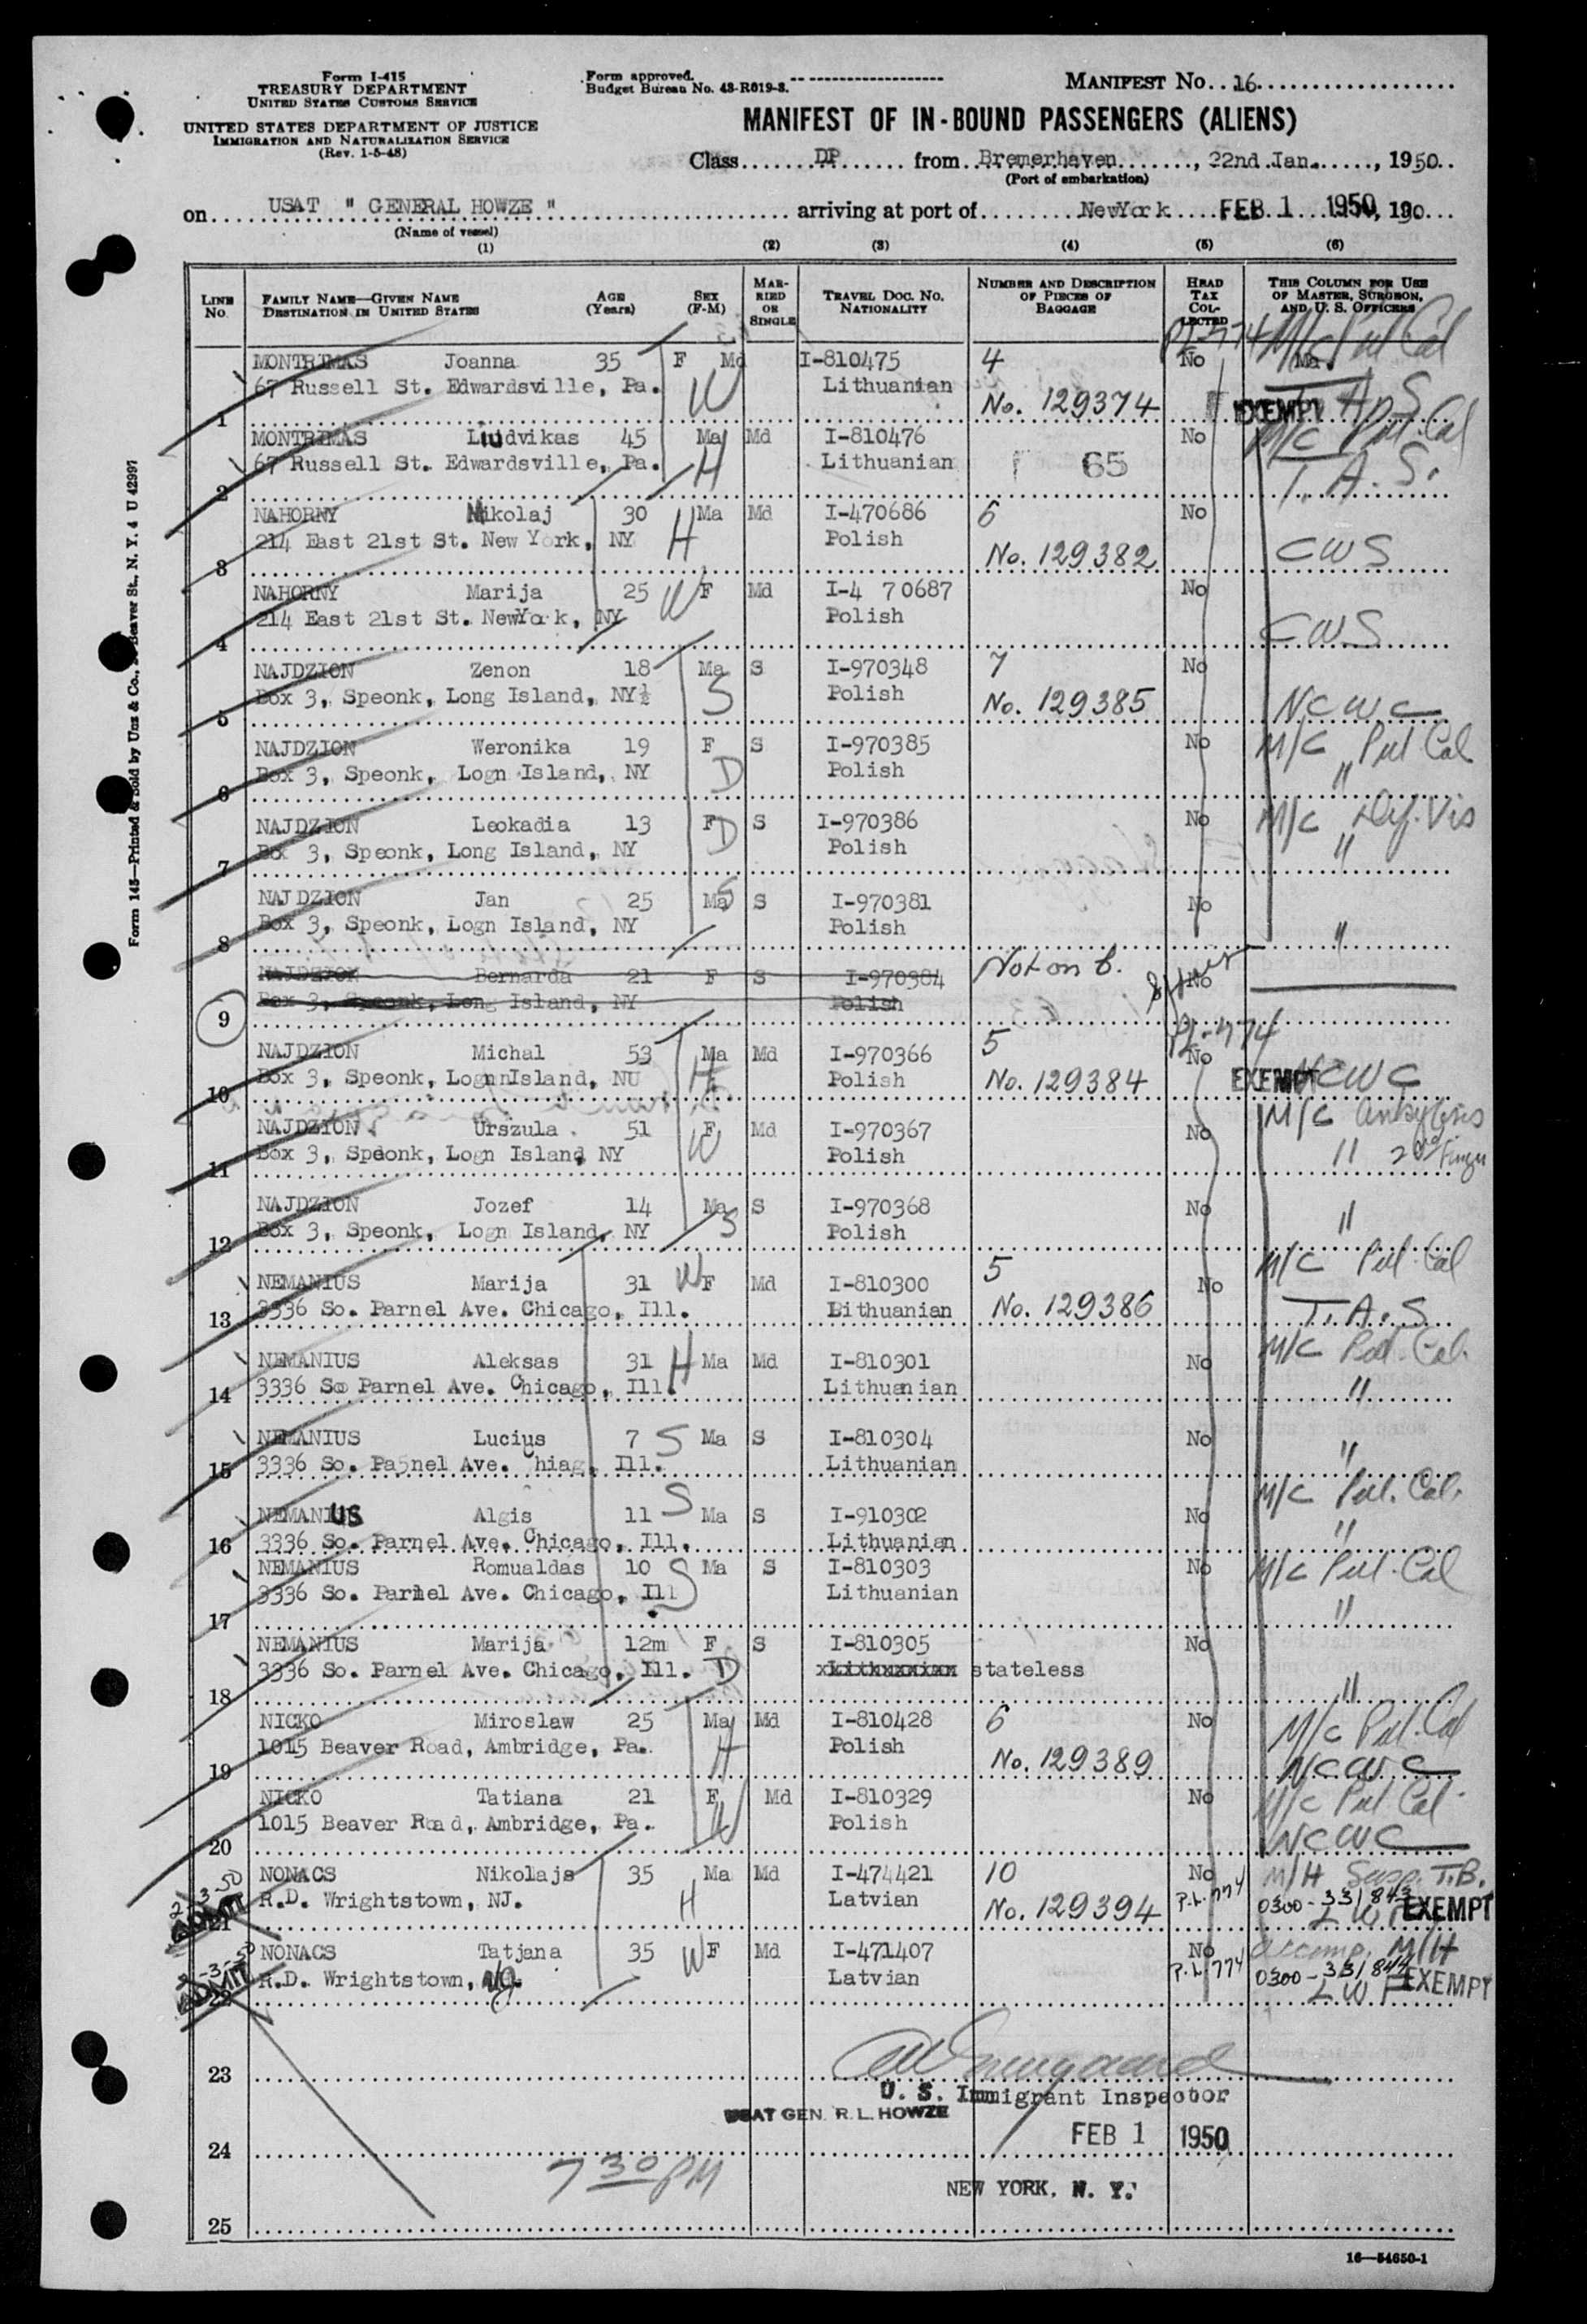 Form I-415
TREASURY DEPARTMENT
UNITED STATES CUSTOMS SERVICE
UNITED STATES DEPARTMENT OF JUSTICE
IMMIGRATION AND NATURALIZATION SERVICE
(Rev. 1-5-48)
Form approved.
Budget Bureau No. 43-R019-3.
MANIFEST No. 16
MANIFEST OF IN-BOUND PASSENGERS (ALIENS)
Class DP from Bremerhaven, 22nd Jan., 1950
(Port of embarkation)
on USAT " GENERAL HOWZE " arriving at port of NewYork FEB 1 1950, 190
(Name of vessel)
(1) (2) (3) (4) (5) (6)
LINE No. FAMILY NAME—GIVEN NAME DESTINATION IN UNITED STATES AGE (Years) SEX (F-M) MARRIED OR SINGLE TRAVEL DOC. NO. NATIONALITY NUMBER AND DESCRIPTION OF PIECES OF BAGGAGE HEAD TAX COLLECTED THIS COLUMN FOR USE OF MASTER, SURGEON, AND U. S. OFFICERS
MONTRIMAS Joanna 35 F Md I-810475 4 No M/C Pul Cal
1 67 Russell St. Edwardsville, Pa. W Lithuanian No. 129374 EXEMPT T.A.S
MONTRIMAS Liudvikas 45 Ma Md I-810476 No M/C Pul Cal
2 67 Russell St. Edwardsville, Pa. H Lithuanian 65 T.A.S.
NAHORNY Mikolaj 30 Ma Md I-470686 6 No
3 214 East 21st St. New York, NY H Polish No. 129382 CWS
NAHORNY Marija 25 W F Md I-4 70687 No
4 214 East 21st St. NewYo k, NY Polish CWS
NAJDZION Zenon 18 Ma S I-970348 7 No
5 Box 3, Speonk, Long Island, NY½ S Polish No. 129385 NCWC
NAJDZION Weronika 19 F S I-970385 No M/C Pul Cal
6 Box 3, Speonk, Logn Island, NY D Polish "
NAJDZION Leokadia 13 F D S I-970386 No M/C Def. Vis
7 Box 3, Speonk, Long Island, NY Polish "
NAJDZION Jan 25 Ma S S I-970381 No
8 Box 3, Speonk, Logn Island, NY Polish "
NAJDZION Bernarda 21 F S I-970384 Not on b. No
9 Box 3, Speonk, Long Island, NY Polish
NAJDZION Michal 53 Ma Md I-970366 5 No
10 Box 3, Speonk, LognnIsland, NU H Polish No. 129384 EXEMPT NCWC
NAJDZION Urszula 51 F Md I-970367 No M/C
11 Box 3, Speonk, Logn Island, NY W Polish " 2nd Finger
NAJDZION Jozef 14 Ma S I-970368 No
12 Box 3, Speonk, Logn Island, NY S Polish "
NEMANIUS Marija 31 W F Md I-810300 5 No M/C Pul. Cal
13 3336 So. Parnel Ave. Chicago, Ill. Lithuanian No. 129386 T.A.S
NEMANIUS Aleksas 31 H Ma Md I-810301 No M/C Pul. Cal.
14 3336 So Parnel Ave. Chicago, Ill. Lithuanian "
NEMANIUS Lucius 7 S Ma S I-810304 No
15 3336 So. Pa5nel Ave. Chiag, Ill. Lithuanian "
NEMANIUS Algis 11 S Ma S I-910302 No M/C Pul. Cal.
16 3336 So. Parnel Ave. Chicago, Ill. Lithuanian "
NEMANIUS Romualdas 10 S Ma S I-810303 No M/C Pul. Cal
17 3336 So. Parnel Ave. Chicago, Ill Lithuanian "
NEMANIUS Marija 12m F S I-810305 No
18 3336 So. Parnel Ave. Chicago, Ill. D stateless "
NICKO Miroslaw 25 Ma Md I-810428 6 No M/C Pul. Cal
19 1015 Beaver Road, Ambridge, Pa. H Polish No. 129389 NCWC
NICKO Tatiana 21 F Md I-810329 No M/C Pul Cal
20 1015 Beaver Road, Ambridge, Pa. W Polish NCWC
2-3-50 NONACS Nikolajs 35 Ma Md I-474421 10 No M/H Susp. T.B.
ADMIT 21 R.D. Wrightstown, NJ. H Latvian No. 129394 P.L. 774 0300-331843 LWF EXEMPT
2-3-50 NONACS Tatjana 35 W F Md I-471407 No accomp. M/H
ADMIT 22 R.D. Wrightstown, NJ. Latvian P.L. 774 0300-331844 LWF EXEMPT
23
U. S. Immigrant Inspector
USAT GEN. R. L. HOWZE
24 FEB 1 1950
7 30 PM
NEW YORK, N. Y.
25
16—54650-1
Form 145—Printed & Sold by Unz & Co., Beaver St., N. Y. 4 U 42997